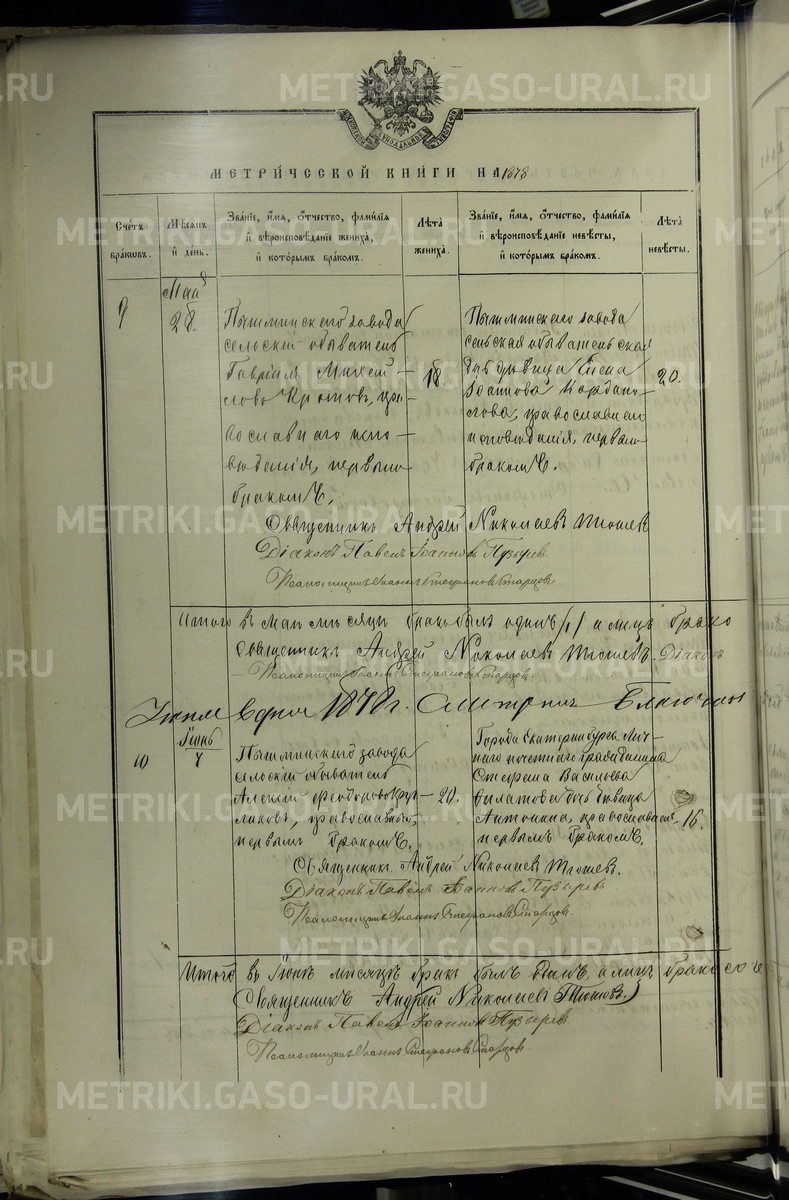 МЕТРИ́ЧЕСКОЙ КНИ́ГИ НА 1878
Сче́тъ бра́ковъ.
Мѣсяцъ и҆ де́нь.
Зва́нїе, и҆́мя, ѻ҆́тчество, фами́лїя и҆ вѣроисповѣ́данїе жениха̀, и҆ кото́рымъ бра́комъ.
Лѣта̀ жениха̀.
Зва́нїе, и҆́мя, ѻ҆́тчество, фами́лїя и҆ вѣроисповѣ́данїе невѣ́сты, и҆ кото́рымъ бра́комъ.
Лѣта̀ невѣ́сты.
9
Мая
28.
Пышминскаго завода
сельскій обыватель
Гавріилъ Михей-
православнаго испо-
вѣданія, первымъ
бракомъ.
18.
Пышминскаго завода
сельская обывательска
дѣвица Елена
Іоаннова
православнаго
исповѣданія, первымъ
бракомъ.
20.
Священникъ Андрей Николаевъ
Діаконъ Павелъ Іоанновъ Пузыревъ
Псаломщикъ Іоаннъ Стефановъ Старцовъ.
Итого въ Маѣ мѣсяцѣ бракъ былъ одинъ /1/ а лицъ брако
Священникъ Андрей Николаевъ Діаконъ
Псаломщикъ Іоаннъ Стефановъ Старцовъ.
1878 г. Благочин
10
Іюнь
7
Пышминскаго завода
сельскій обыватель
Алексій Феодоровъ
православный,
первымъ бракомъ.
20.
Города Екатеринбурга лич-
наго почетнаго гражданина
Стефана Васильева
Филатова дочь дѣвица
Антонина, православная,
первымъ бракомъ.
16.
Священникъ Андрей Николаевъ
Діаконъ Павелъ Іоанновъ Пузыревъ
Псаломщикъ Іоаннъ Стефановъ Старцовъ.
Итого въ Іюнѣ мѣсяцѣ бракъ былъ одинъ, а лицъ бракосоче
Священникъ Андрей Николаевъ
Діаконъ Павелъ Іоанновъ Пузыревъ
Псаломщикъ Іоаннъ Стефановъ Старцовъ.
METRIKI.GASO-URAL.RU